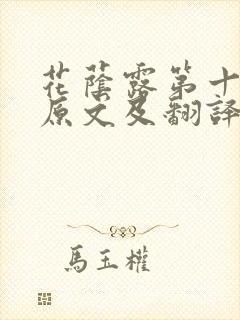 花蔭露第十
原文及翻譯
馬玉權